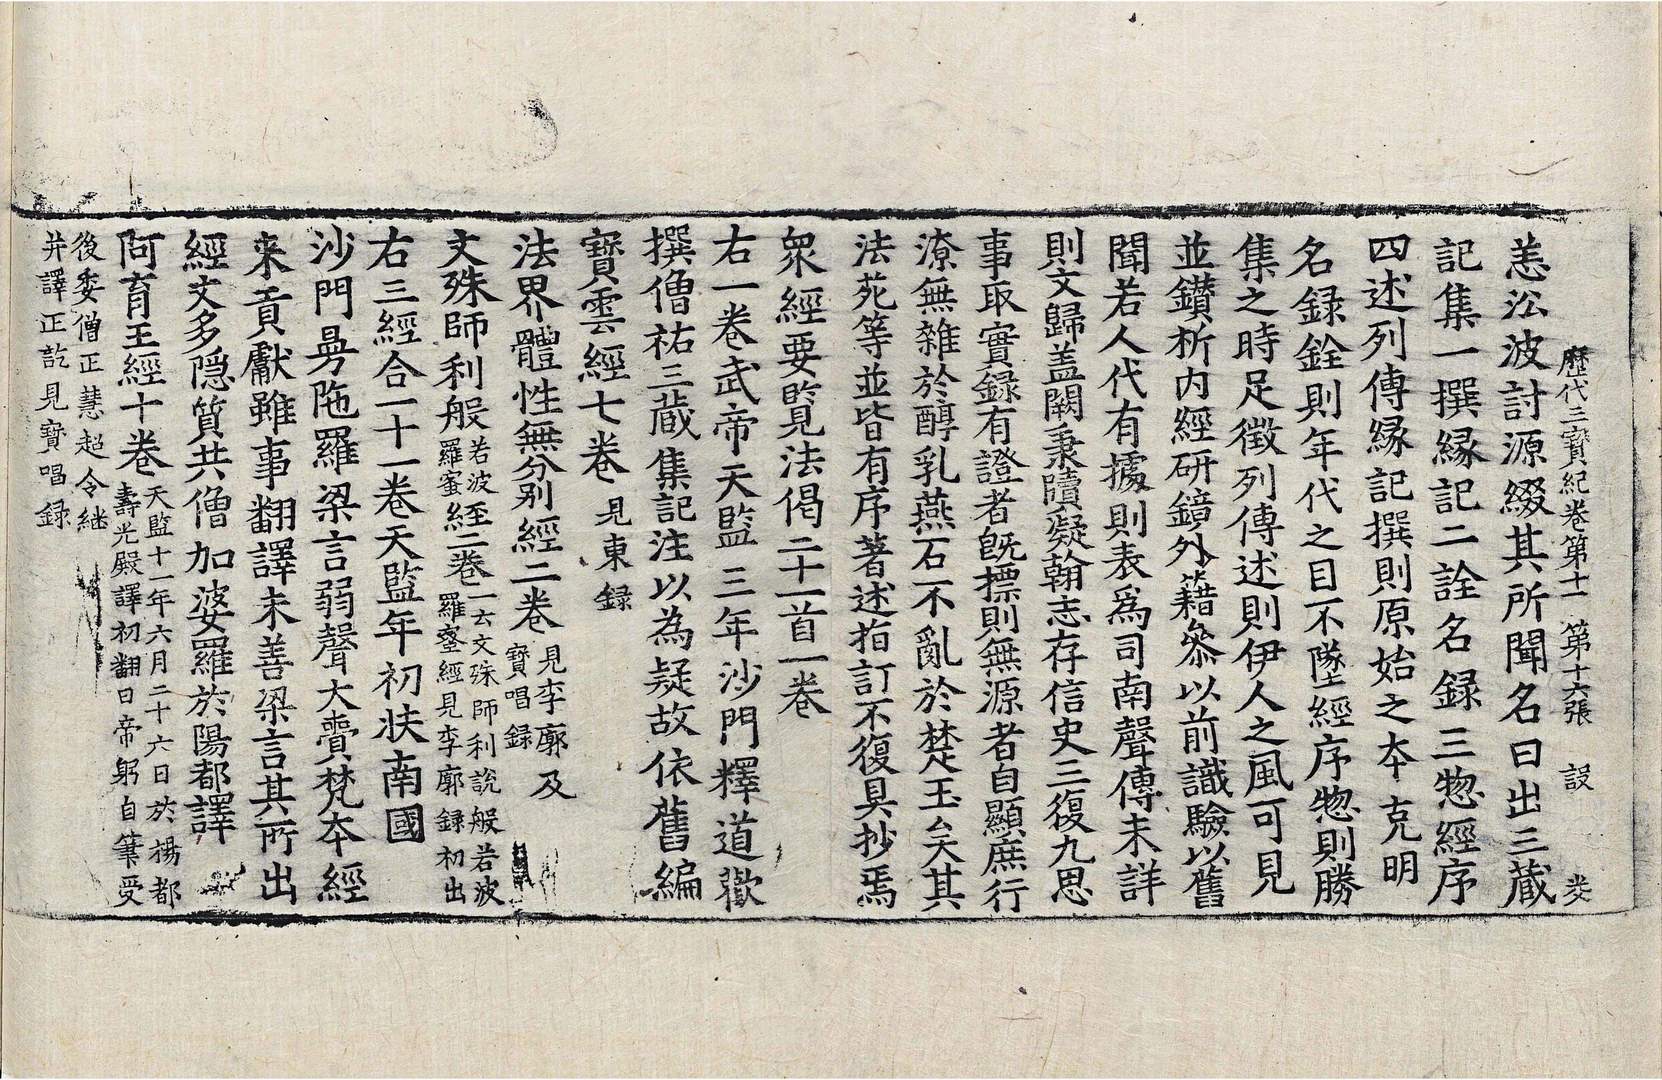 歷代三寶紀卷第十一 第十六張 設
恙㳂波討源綴其所聞名曰出三藏
記集一撰緣記二詮名録三惣經序
四述列傳緣記撰則原始之本克明
名録銓則年代之目不墜經序惣則勝
集之時足徵列傳述則伊人之風可見
並鑚析内經研鏡外籍叅以前識驗以舊
聞若人代有據則表爲司南聲傳未詳
則文歸盖闕秉牘凝翰志存信史三復九思
事取實録有證者旣標則無源者自顯庶行
潦無雜於醇乳燕石不亂於楚玉矣其
法苑等並皆有序著述指訂不復具抄焉
衆經要覽法偈二十一首一卷
右一卷武帝天監三年沙門釋道歡
撰僧祐三蔵集記注以為疑故依舊編
寶雲經七卷 見東録
法界體性無分别經二卷 見李廓及寶唱録
文殊師利般若波羅蜜經二卷 一云文殊師利說般若波羅蜜經見李廓録初出
右三經合一十一卷天監年初扶南國
沙門曼陁羅梁言弱聲大賷梵本經
来貢獻雖事翻譯未善梁言其所出
經文多隐質共僧加婆羅於陽都譯
阿育王經十卷 天監十一年六月二十六日於揚都壽光殿譯初翻日帝躬自筆受
後委僧正慧超令継并譯正訖見寶唱録